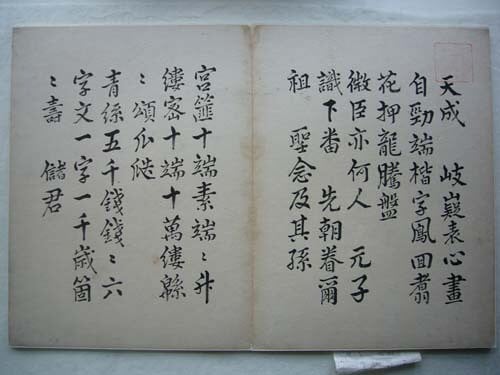 天成 岐嶷表心畫
自勁端楷字鳳回翥
花押龍騰盤
微臣亦何人 元子
識下番 先朝眷爾
祖 聖念及其孫
宮籬十端素端〻斗
縷密十端十萬縷緜
〻頌瓜瓞
青絲五千錢錢〻六
字文一字一千歲箇
〻壽 儲君